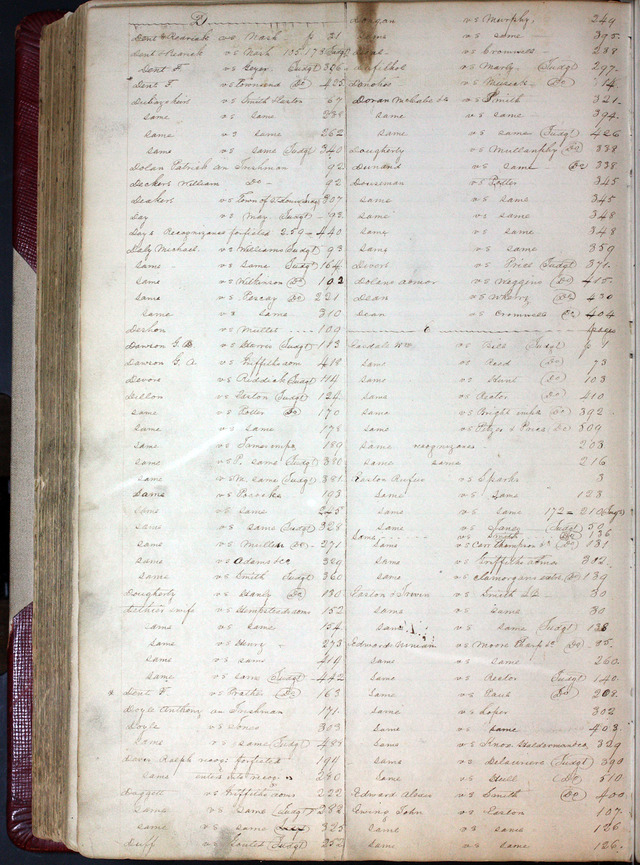 D
Dent & Rearick vs Nash p 31
Dent & Rearick vs Nash 105 173 Judgt
Dent F. vs Geyer Judgt 306
Dent F. vs Townsend Do 425
Dubayckers vs Smith Harton 67
same vs same 238
same vs same 262
same vs same Judgt 340
Dolan Patrick an Irishman 92
Deckers William Do 92
Deakers vs Town of St Louis Judgt 307
Day vs May Judgt 92
Days Recognizance forfield 259 - 440
Daly Michael vs Williams Judgt 93
same vs same Judgt 164
same vs Wilkerson Do 102
same vs Pescay Do 221
same vs same 310
Dechon vs Mullet 109
Dawson G. B vs Garner Judgt 113
Dawson G. A vs Griffith adom 418
Devore vs Ruddick Judgt 114
Dillon vs Easton Judgt 124
same vs Potter Do 170
same vs same 178
same vs James impr 189
same vs P. same Judgt 380
same vs M. same Judgt 381
same vs Patricks 193
same vs same 245
same vs same Judgt 328
same vs Mullen Do 271
same vs Adams &c 329
same vs Smith Judgt 360
Dougherty vs Haney Do 130
Dethier wife vs Hempstead adom 152
same vs same 154
same vs Henry 273
same vs same 414
same vs same Judgt 442
Dent F. vs Prather Do 163
Doyle Anthony an Irishman 171
Doyle vs Jones 303
same vs same Judgt 485
Davis Ralph recog forfeited 194
same enters into recog 280
Daggett vs Griffith adom 222
same vs same Judgt 282
same vs same 325
Duff vs Gould Judgt 252
Dongan vs Murphy 249
same vs same 395
vs Cromwell 238
vs Marly Judgt 297
Donohoe vs Musick Do 14
Doran McCabe &c vs Smith 321
same vs same 394
same vs same Judgt 426
Dougherty vs Mullanphy Do 338
Dunand vs same Do 338
Douseman vs Potter 345
same vs same 345
same vs same 348
same vs same 348
same vs same 359
Divers vs Price Judgt 371
Dolans admor vs Wiggins Do 415
Dean vs Wherry Do 430
Dean vs Cromwell Do 404
E
pages
Easdale Wm vs Bell Judgt p 1
same vs Reed Do 73
same vs Hunt Do 103
same vs Rector Do 410
same vs Wright impr Do 392
same vs Fitzer & Price Do 509
same recognizance 203
same same 216
Easton Rufus vs Sparks 3
same vs same 123
same vs same 172 - 210 Judgt
same vs Janey Judgt 50
same vs Smith Do 136
same vs Carr Champion &c Do 131
same vs Griffith adma 302
same vs Clamorgans exetr Do 139
Easton & Irwin vs Smith &c 30
same vs same 30
same vs same Judgt 138
Edward Ninian vs Moore Tharp &c Do 85
same vs same 260
same vs Rector Judgt 140
same vs Paul Do 208
same vs Loper 302
same vs same 403
same vs Knox Heldermanlea 329
same vs Delaurier Judgt 390
same vs Hull Do 510
Edward Alexis vs Smith Do 400
Ewing John vs Easton 107
same vs same 126
same vs same 126